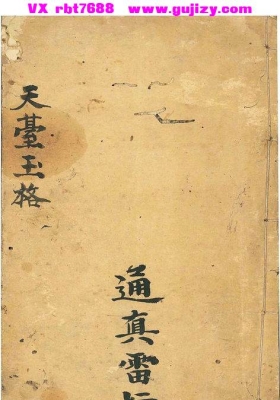 VX rbt7688 www.gujizy.com
天臺玉格
通真雷